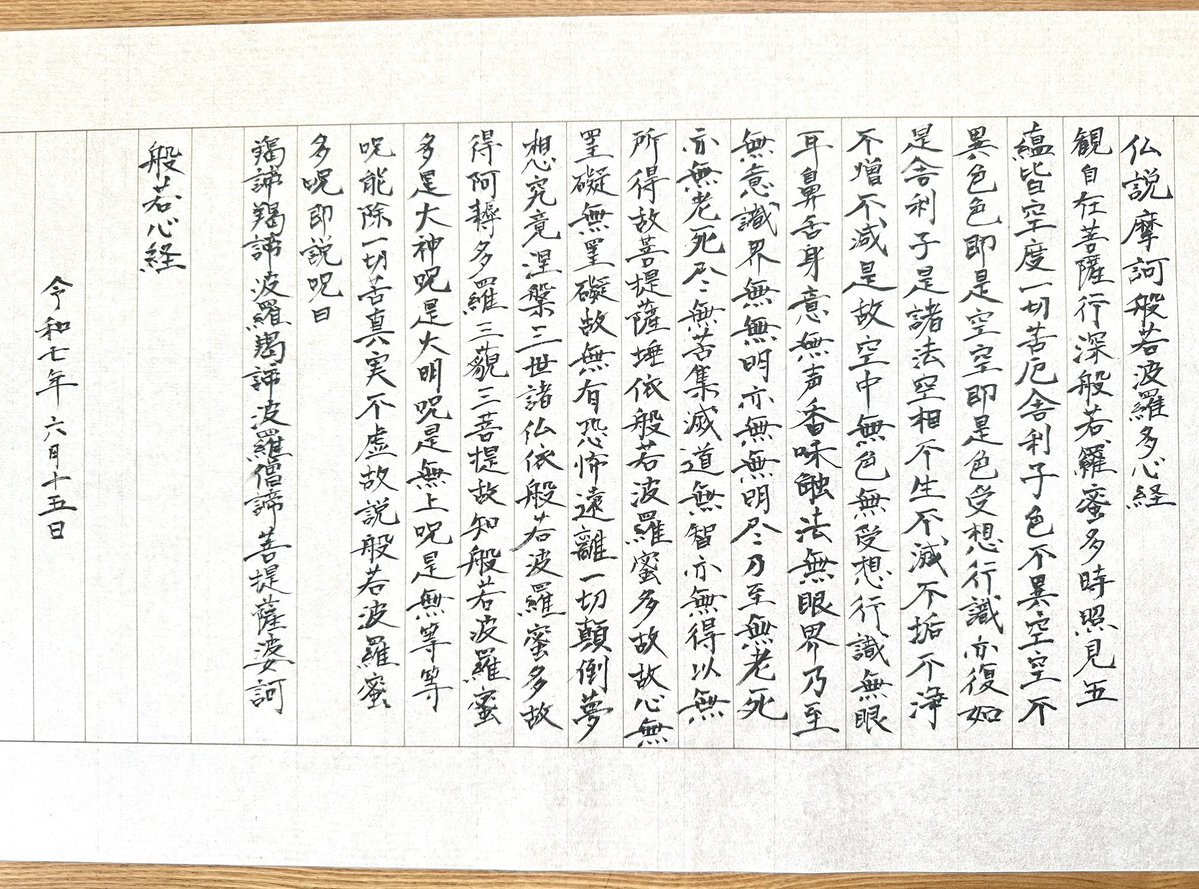 仏説摩訶般若波羅多心経
観自在菩薩行深般若羅蜜多時照見五
蘊皆空度一切苦厄舎利子色不異空空不
異色色即是空空即是色受想行識亦復如
是舎利子是諸法空相不生不滅不垢不浄
不増不減是故空中無色無受想行識無眼
耳鼻舌身意無声香味触法無眼界乃至
無意識界無無明亦無無明尽乃至無老死
亦無老死尽無苦集滅道無智亦無得以無
所得故菩提薩埵依般若波羅蜜多故故心無
罣礙無罣礙故無有恐怖遠離一切顛倒夢
想究竟涅槃三世諸仏依般若波羅蜜多故
得阿耨多羅三藐三菩提故知般若波羅蜜
多是大神呪是大明呪是無上呪是無等等
呪能除一切苦真実不虚故説般若波羅蜜
多呪即説呪曰
羯諦羯諦波羅羯諦波羅僧諦菩提薩婆訶
般若心経
令和七年 六月十五日